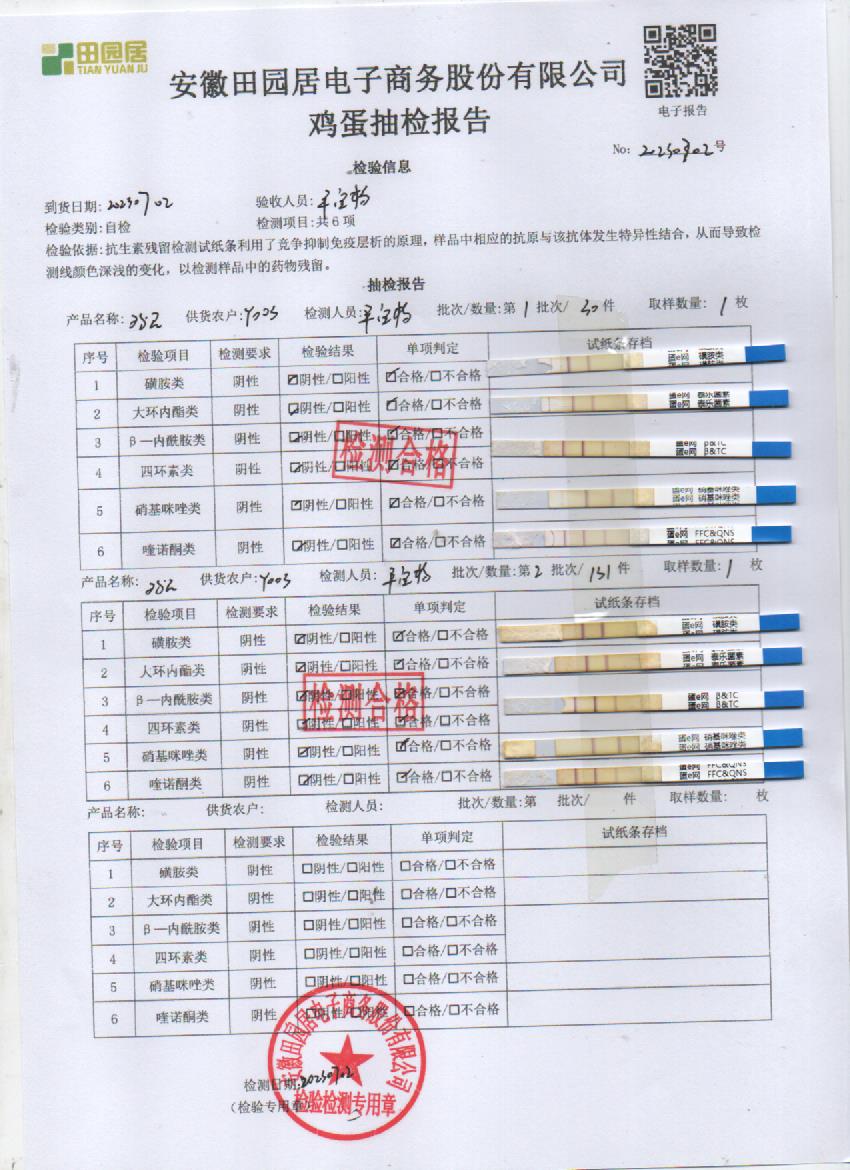 田园居
TIAN YUAN JU
安徽田园居电子商务股份有限公司
鸡蛋抽检报告
电子报告
No: 20230702号
检验信息
到货日期: 20230702 验收人员:
检验类别:自检 检测项目:共6项
检验依据:抗生素残留检测试纸条利用了竞争抑制免疫层析的原理，样品中相应的抗原与该抗体发生特异性结合，从而导致检
测线颜色深浅的变化，以检测样品中的药物残留。
抽检报告
产品名称: 供货农户:Y003 检测人员: 批次/数量:第1批次/30件 取样数量: 1枚
序号 检验项目 检测要求 检验结果 单项判定 试纸条存档
1 磺胺类 阴性 ☑阴性/☐阳性 ☑合格/☐不合格 蛋e网 磺胺类
2 大环内酯类 阴性 ☑阴性/☐阳性 ☑合格/☐不合格 蛋e网 泰乐菌素
3 β—内酰胺类 阴性 ☑阴性/☐阳性 ☑合格/☐不合格 蛋e网 β&TC
4 四环素类 阴性 ☑阴性/☐阳性 ☑合格/☐不合格
5 硝基咪唑类 阴性 ☑阴性/☐阳性 ☑合格/☐不合格 蛋e网 硝基咪唑类
6 喹诺酮类 阴性 ☑阴性/☐阳性 ☑合格/☐不合格 蛋e网 FFC&QNS
检测合格
产品名称: 供货农户:Y003 检测人员: 批次/数量:第2批次/151件 取样数量: 1枚
序号 检验项目 检测要求 检验结果 单项判定 试纸条存档
1 磺胺类 阴性 ☑阴性/☐阳性 ☑合格/☐不合格 蛋e网 磺胺类
2 大环内酯类 阴性 ☑阴性/☐阳性 ☑合格/☐不合格 蛋e网 泰乐菌素
3 β—内酰胺类 阴性 ☑阴性/☐阳性 ☑合格/☐不合格 蛋e网 β&TC
4 四环素类 阴性 ☑阴性/☐阳性 ☑合格/☐不合格
5 硝基咪唑类 阴性 ☑阴性/☐阳性 ☑合格/☐不合格 蛋e网 硝基咪唑类
6 喹诺酮类 阴性 ☑阴性/☐阳性 ☑合格/☐不合格 蛋e网 FFC&QNS
检测合格
产品名称: 供货农户: 检测人员: 批次/数量:第 批次/ 件 取样数量: 枚
序号 检验项目 检测要求 检验结果 单项判定 试纸条存档
1 磺胺类 阴性 ☐阴性/☐阳性 ☐合格/☐不合格
2 大环内酯类 阴性 ☐阴性/☐阳性 ☐合格/☐不合格
3 β—内酰胺类 阴性 ☐阴性/☐阳性 ☐合格/☐不合格
4 四环素类 阴性 ☐阴性/☐阳性 ☐合格/☐不合格
5 硝基咪唑类 阴性 ☐阴性/☐阳性 ☐合格/☐不合格
6 喹诺酮类 阴性 ☐阴性/☐阳性 ☐合格/☐不合格
安徽田园居电子商务股份有限公司
检测日期:20230702
（检验专用章）
检验检测专用章